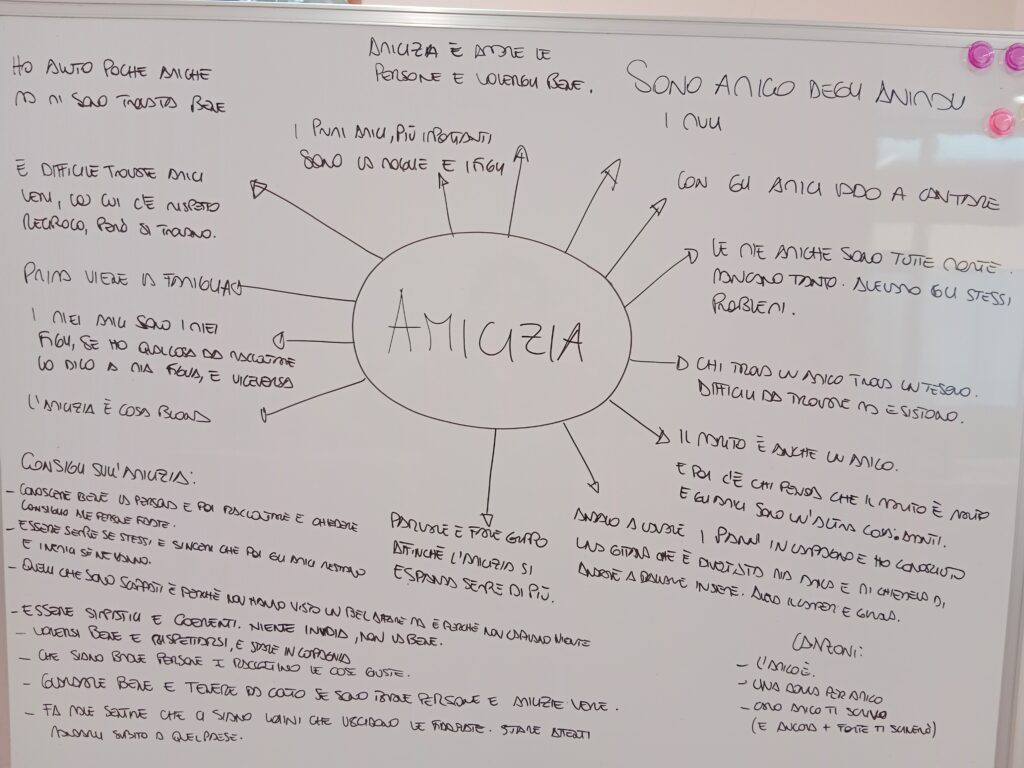 HO AVUTO POCHE AMICHE
MA MI SONO TROVATA BENE
AMICIZIA È AVERE LE
PERSONE E VOLERGLI BENE.
SONO AMICO DEGLI ANIMALI
I MULI
I PRIMI AMICI, PIÙ IMPORTANTI
SONO LA MOGLIE E I FIGLI
È DIFFICILE TROVARE AMICI
VERI, CON CUI C'È RISPETTO
RECIROCO, PERÒ SI TROVANO.
CON GLI AMICI VADO A CANTARE
LE MIE AMICHE SONO TUTTE MORTE.
MANCANO TANTO. AVEVAMO GLI STESSI
PROBLEMI.
PRIMA VIENE LA FAMIGLIA
I MIEI AMICI SONO I MIEI
FIGLI, SE HO QUALCOSA DA RACCONTARE
LO DICO A MIA FIGLIA, E VICEVERSA
L'AMICIZIA È COSA BUONA
AMICIZIA
CHI TROVA UN AMICO TROVA UN TESORO.
DIFFICILI DA TROVARE MA ESISTONO.
IL MARITO È ANCHE UN AMICO.
E POI C'È CHI PENSA CHE IL MARITO È MARITO
E GLI AMICI SONO UN'ALTRA COSA.
ANDAVO A LAVARE I PANNI IN CAMPAGNA E HO CONOSCIUTO
UNA GITANA CHE È DIVENTATA MIA AMICA E MI CHIEDEVA DI
ANDARE A BALLARE INSIEME.
PARLARE E FARE GRUPPO
AFFINCHÈ L'AMICIZIA SI
ESPANDA SEMPRE DI PIÙ.
CONSIGLI SULL'AMICIZIA:
- CONOSCERE BENE LA PERSONA E POI RACCONTARE E CHIEDERE
CONSIGLIO ALLE PERSONE FIDATE.
- ESSERE SEMPRE SE STESSI E SINCERI CHE POI GLI AMICI RESTANO
E I NEMICI SE NE VANNO.
- QUELLI CHE SONO SCAPPATI È PERCHÈ NON HANNO VISTO UN BEL MA È PERCHÈ NON CAPIVANO NIENTE
- ESSERE SIMPATICI E COERENTI. NIENTE INVIDIA, NON VA BENE.
- VOLERSI BENE E RISPETTARSI, E STARE IN COMPAGNIA
- CHE SIANO BRAVE PERSONE E RACCONTINO LE COSE GIUSTE.
- GUARDARE BENE E TENERE DA CONTO SE SONO BRAVE PERSONE E AMICIZIE VERE.
- FA MALE SENTIRE CHE CI SIANO UOMINI CHE UCCIDONO LE FIDANZATE. STARE ATTENTI
MANDARLI SUBITO A QUEL PAESE.
CANZONI:
- L'AMICO È.
- UNA DONNA PER AMICO
- CARO AMICO TI SCRIVO
(E ANCORA + FORTE TI SCRIVERÒ)